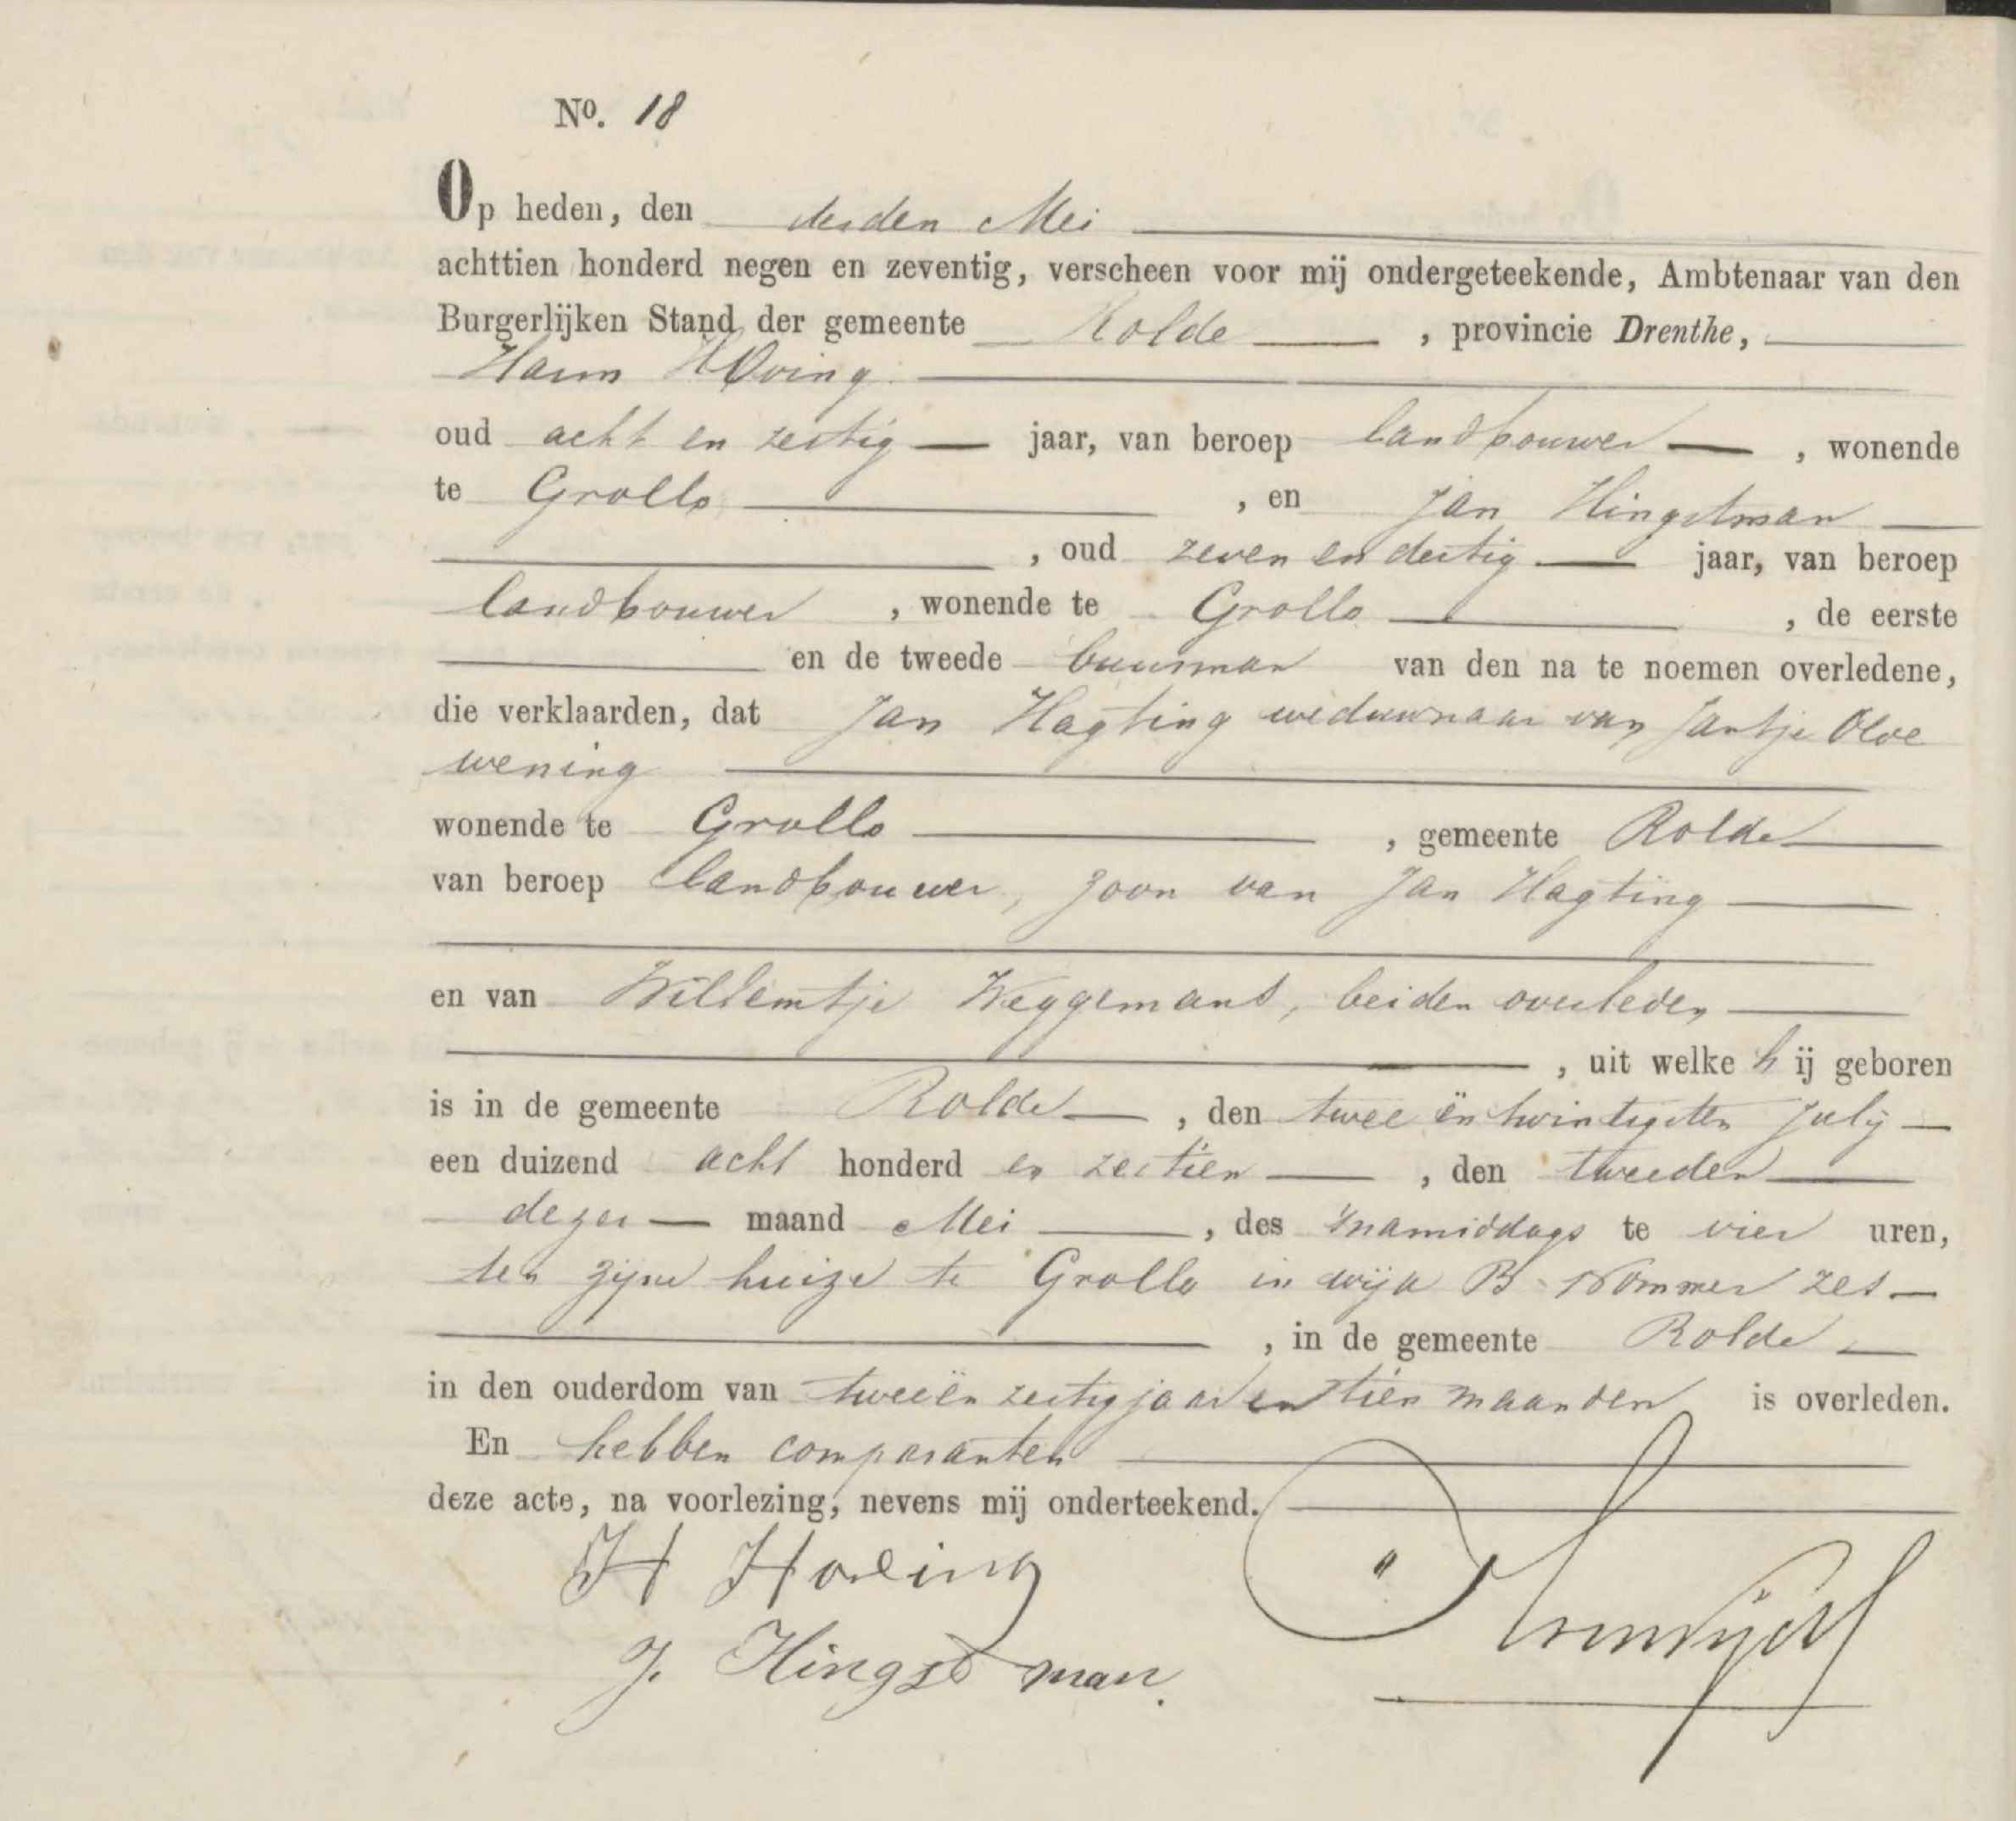 No. 18
Op heden, den derden Mei
achttien honderd negen en zeventig, verscheen voor mij ondergeteekende, Ambtenaar van den
Burgerlijken Stand der gemeente Rolde, provincie Drenthe,
Harm Hoving
oud acht en zestig jaar, van beroep landbouwer, wonende
te Grollo, en Jan Hingstman
, oud zeven en dertig jaar, van beroep
landbouwer, wonende te Grollo, de eerste
en de tweede buurman van den na te noemen overledene,
die verklaarden, dat Jan Hagting weduwnaar van Jantje Olde
wening
wonende te Grollo, gemeente Rolde
van beroep landbouwer, zoon van Jan Hagting
en van Willemtje Weggemans, beiden overleden
, uit welke hij geboren
is in de gemeente Rolde, den twee en twintigsten July
een duizend acht honderd en zestien, den tweeden
dezer maand Mei, des namiddags te vier uren,
ten zijne huize te Grollo in wijk B Nommer zes
, in de gemeente Rolde
in den ouderdom van tweeën zestig jaar en tien maanden is overleden.
En hebben comparanten
deze acte, na voorlezing, nevens mij onderteekend.
H Hoving
J. Hingstman.